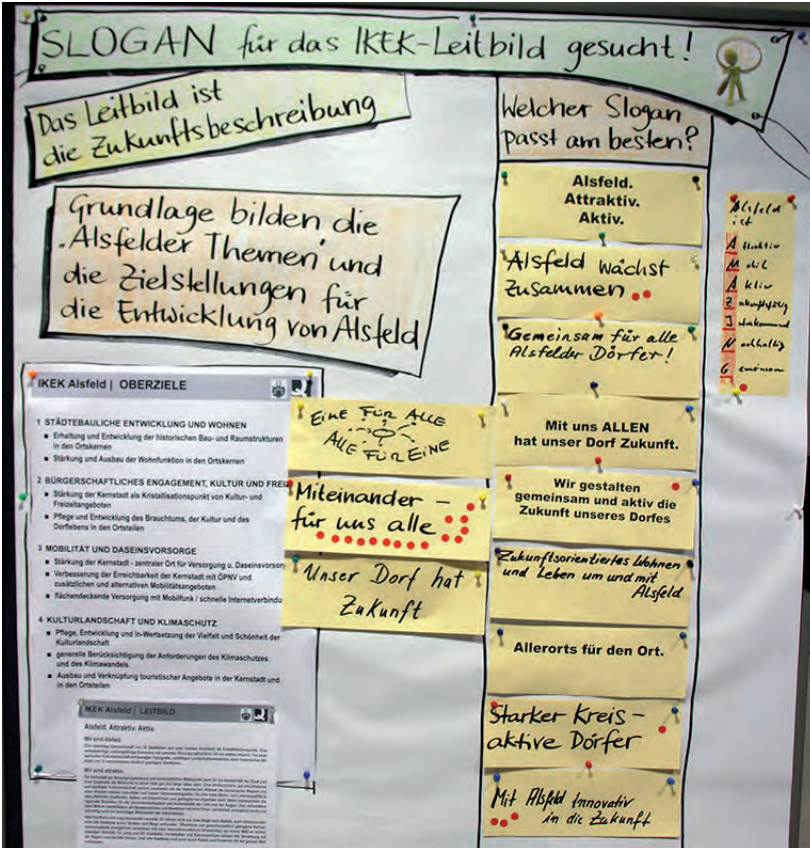 SLOGAN für das IKEK-Leitbild gesucht!
Das Leitbild ist
die Zukunftsbeschreibung
Grundlage bilden die
"Alsfelder Themen" und
die Zielstellungen für
die Entwicklung von Alsfeld
IKEK Alsfeld | OBERZIELE
1 STÄDTEBAULICHE ENTWICKLUNG UND WOHNEN
■ Erhaltung und Entwicklung der historischen Bau- und Raumstrukturen
in den Ortskernen
■ Stärkung und Ausbau der Wohnfunktion in den Ortskernen
2 BÜRGERSCHAFTLICHES ENGAGEMENT, KULTUR UND FREI
■ Stärkung der Kernstadt als Kristallisationspunkt von Kultur- und
Freizeitangeboten
■ Pflege und Entwicklung des Brauchtums, der Kultur und des
Dorflebens in den Ortsteilen
3 MOBILITÄT UND DASEINSVORSORGE
■ Stärkung der Kernstadt - zentraler Ort für Versorgung u. Daseinsvorsor
■ Verbesserung der Erreichbarkeit der Kernstadt mit ÖPNV und
zusätzlichen und alternativen Mobilitätsangeboten
■ flächendeckende Versorgung mit Mobilfunk / schnelle Internetverbindu
4 KULTURLANDSCHAFT UND KLIMASCHUTZ
■ Pflege, Entwicklung und In-Wertsetzung der Vielfalt und Schönheit der
Kulturlandschaft
■ generelle Berücksichtigung der Anforderungen des Klimaschutzes
und des Klimawandels
■ Ausbau und Verknüpfung touristischer Angebote in der Kernstadt und
in den Ortsteilen
IKEK Alsfeld | LEITBILD
Alsfeld. Attraktiv. Aktiv.
Wir sind Alsfeld
Wir sind attraktiv
EINE FÜR ALLE
ALLE FÜR EINE
Miteinander –
für uns alle
Unser Dorf hat
Zukunft
Welcher Slogan
passt am besten?
Alsfeld.
Attraktiv.
Aktiv.
Alsfeld wächst
zusammen
Gemeinsam für alle
Alsfelder Dörfer!
Mit uns ALLEN
hat unser Dorf Zukunft.
Wir gestalten
gemeinsam und aktiv die
Zukunft unseres Dorfes
Zukunftsorientiertes Wohnen
und Leben um und mit
Alsfeld
Allerorts für den Ort.
Starker Kreis –
aktive Dörfer
Mit Alsfeld Innovativ
in die Zukunft
Alsfeld
ist
A ttraktiv
M obil
A ktiv
Z ukunftsfähig
I
N achhaltig
G emeinsam